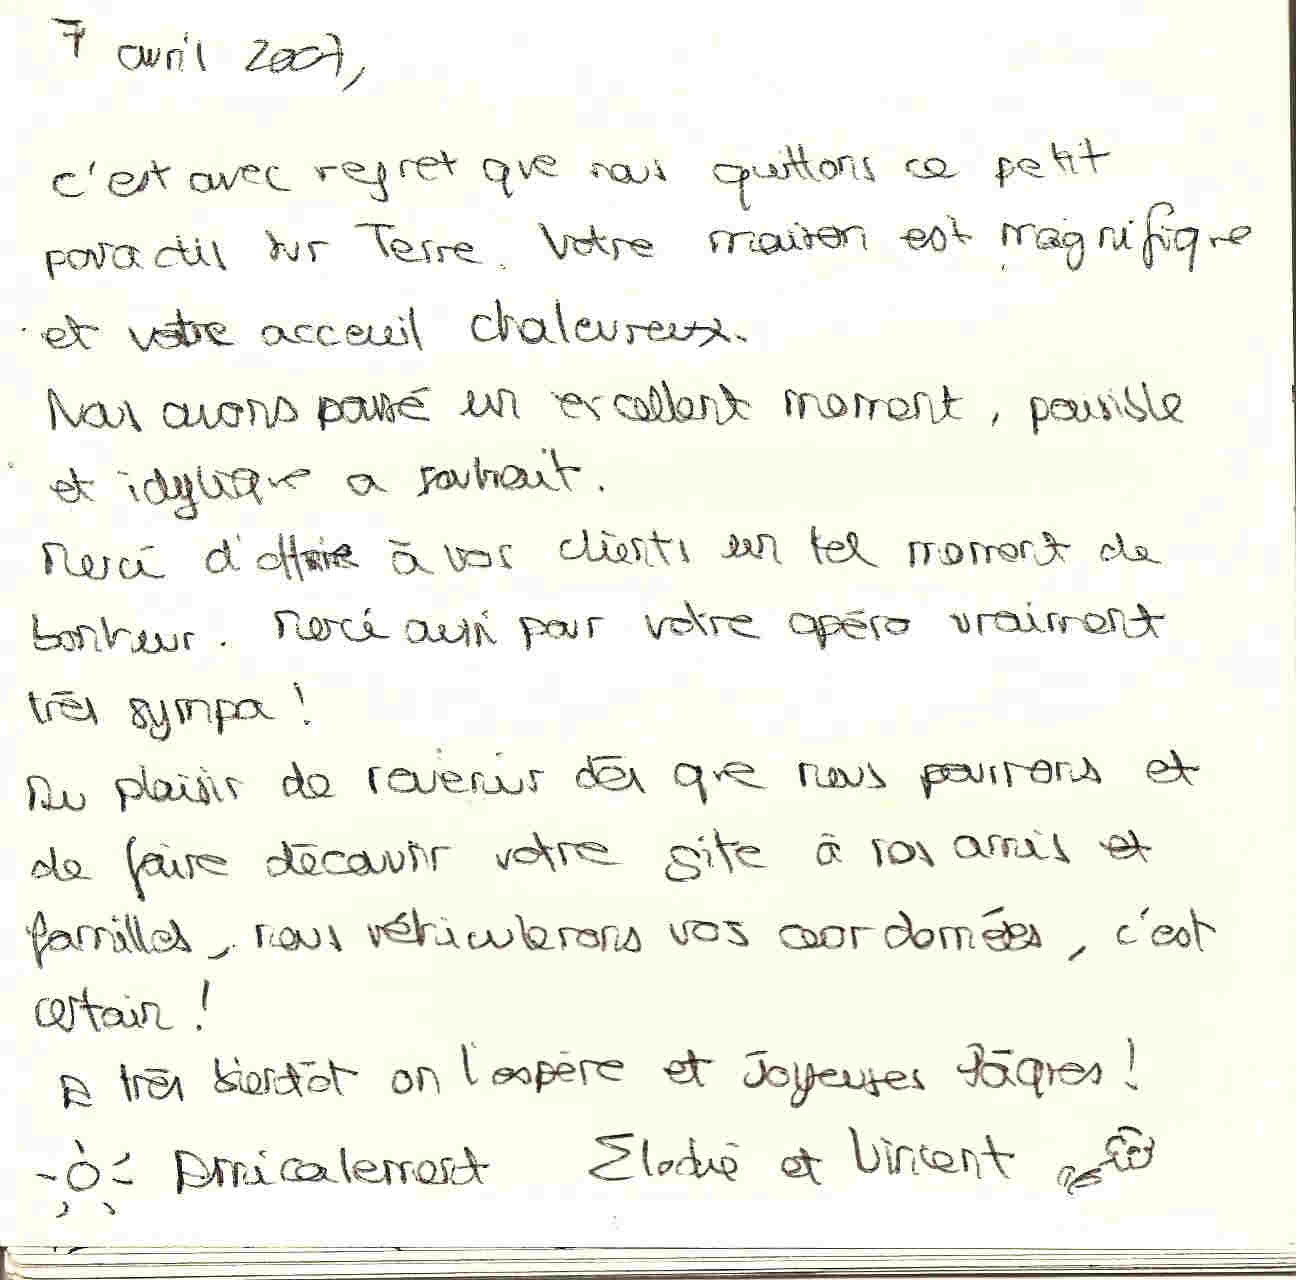 7 avril 2007,
c'est avec regret que nous quittons ce petit
paradis sur Terre. Votre maison est magnifique
et votre acceuil chaleureux.
Nous avons passé un excellent moment, paisible
et idylique a souhait.
Merci d'offrir à vos clients un tel moment de
bonheur. Merci aussi pour votre apéro vraiment
très sympa !
Au plaisir de revenir dès que nous pourrons et
de faire découvrir votre gite à nos amis et
familles, nous véhiculerons vos coordonnées, c'est
certain !
A très bientôt on l'espère et Joyeuses Pâques !
Amicalement Elodie et Vincent